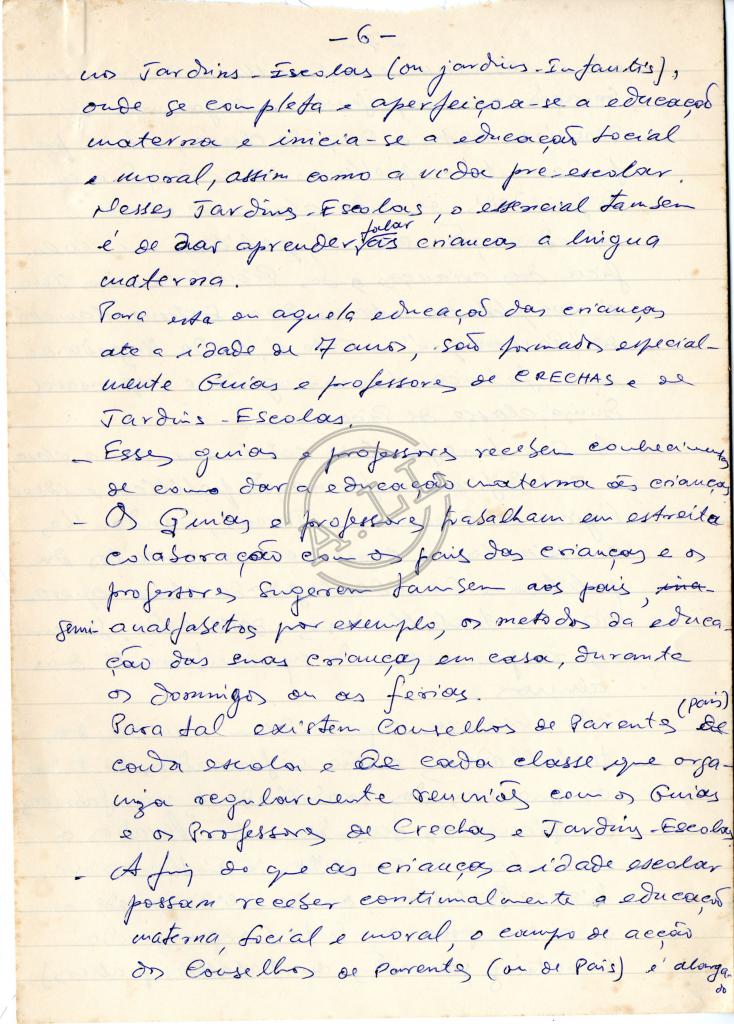 - 6 -
nos Jardins-Escolas (ou jardins-Infantis),
onde se completa e aperfeiçoa-se a educação
materna e inicia-se a educação social
e moral, assim como a vida pré-escolar.
Nesses Jardins-Escolas, o essencial tambem
é de dar aprender falar às crianças a lingua
materna.
Para esta ou aquela educação das crianças
ate a idade de 7 anos, são formados especial-
mente Guias e professores de CRECHAS e de
Jardins-Escolas.
- Esses guias e professores recebem conhecimentos
de como dar a educação materna às crianças
- Os Guias e professores trabalham em estreita
colaboração com os pais das crianças e os
professores sugerem tambem aos pais,
semi-analfabetos por exemplo, os metodos da educa-
ção das suas crianças em casa, durante
os domingos ou as férias.
Para tal existem Conselhos de Parentes (Pais) de
cada escola e de cada classe que orga-
niza regularmente reuniões com os Guias
e os Professores de Crechas e Jardins-Escolas
- A fim de que as crianças a idade escolar
possam receber continualmente a educação
materna, social e moral, o campo de acção
dos Conselhos de Parentes (ou de Pais) é alarga-
do
A.LL